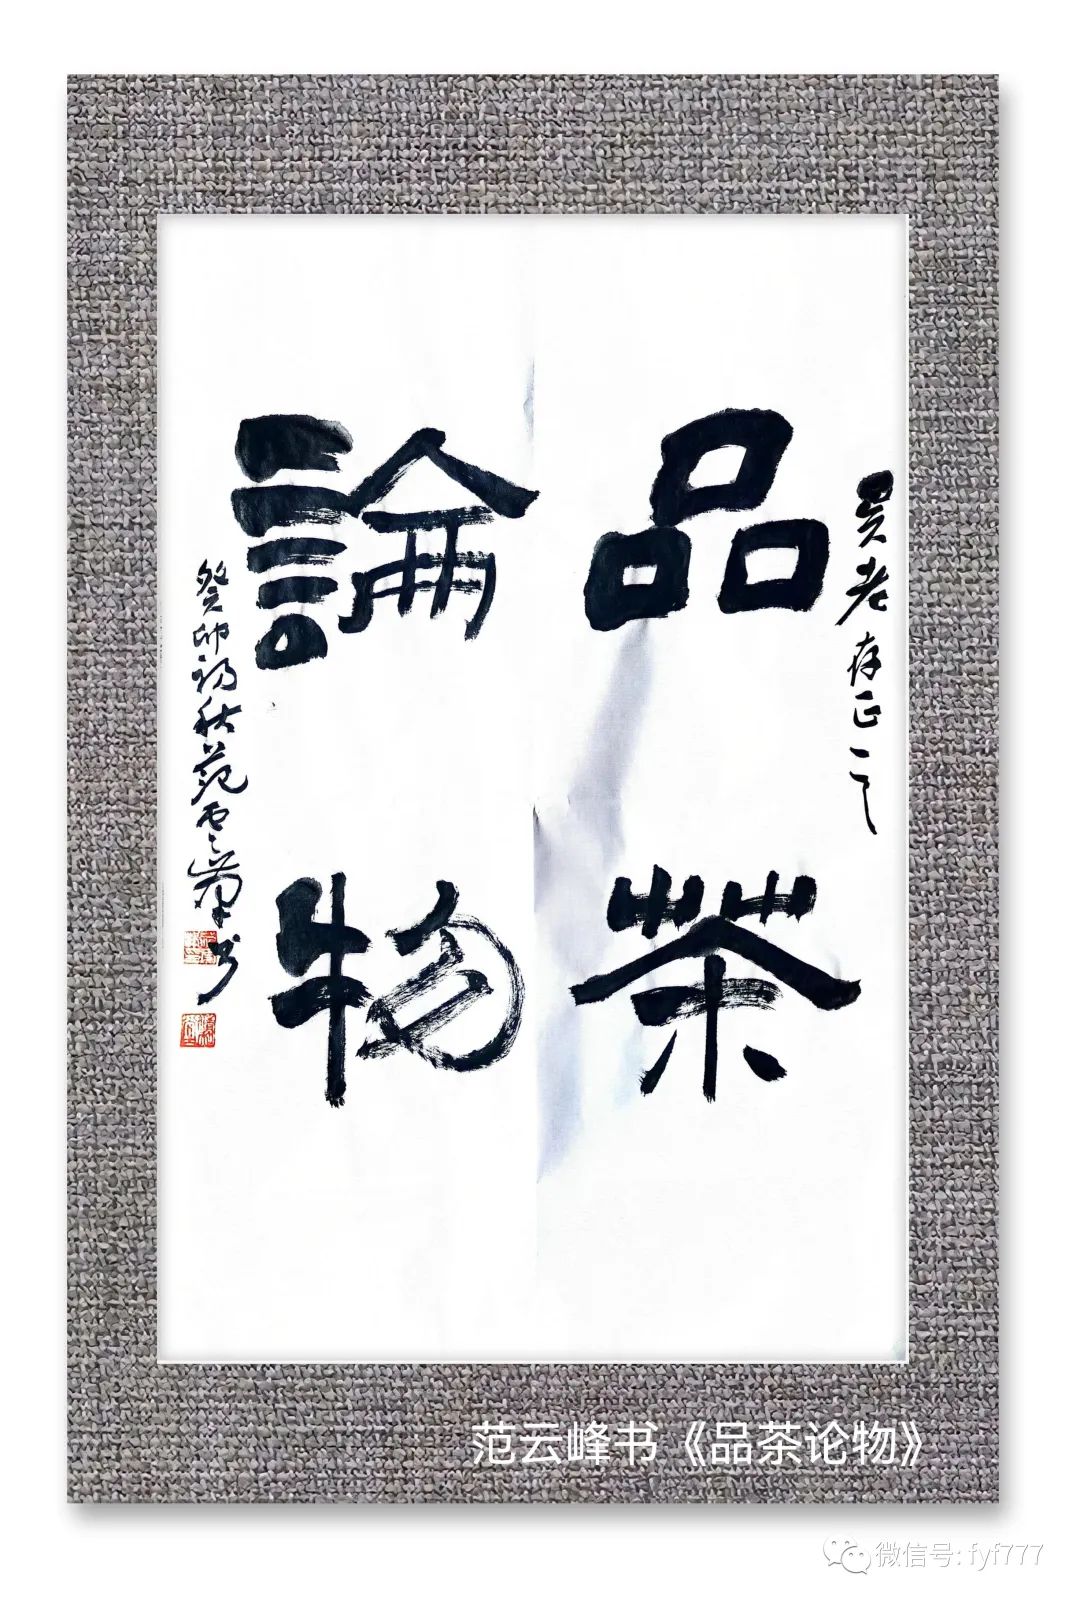 吴老存正之
品茶
論物
癸卯初秋范云峰书
范云峰书《品茶论物》
微信号: fyf777